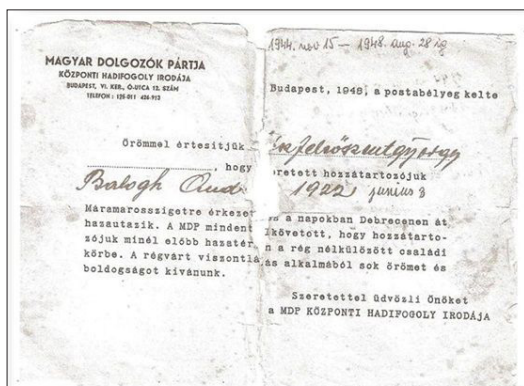 1944. nov 15 — 1948. aug. 28 ig
MAGYAR DOLGOZÓK PÁRTJA
KÖZPONTI HADIFOGOLY IRODÁJA
BUDAPEST, VI. KER., Ó-UTCA 12. SZÁM
TELEFON: 126-011 426-912
Budapest, 1948, a postabélyeg kelte
Örömmel értesítjük
hogy eretett hozzátartozójuk
Balogh 1922 junius 3
Máramarosszigetre érkezet s a napokban Debrecenen át
hazautazik. A MDP mindent lkövetott, hogy hozzátarto-
zójuk minél előbb hazatér n a rég nélkülözött családi
körbe. A régvárt viszontlá ás alkalmából sok örömet és
boldogságot kivánunk.
Szeretettel üdvözli Önöket
a MDP KÖZPONTI HADIFOGOLY IRODÁJA